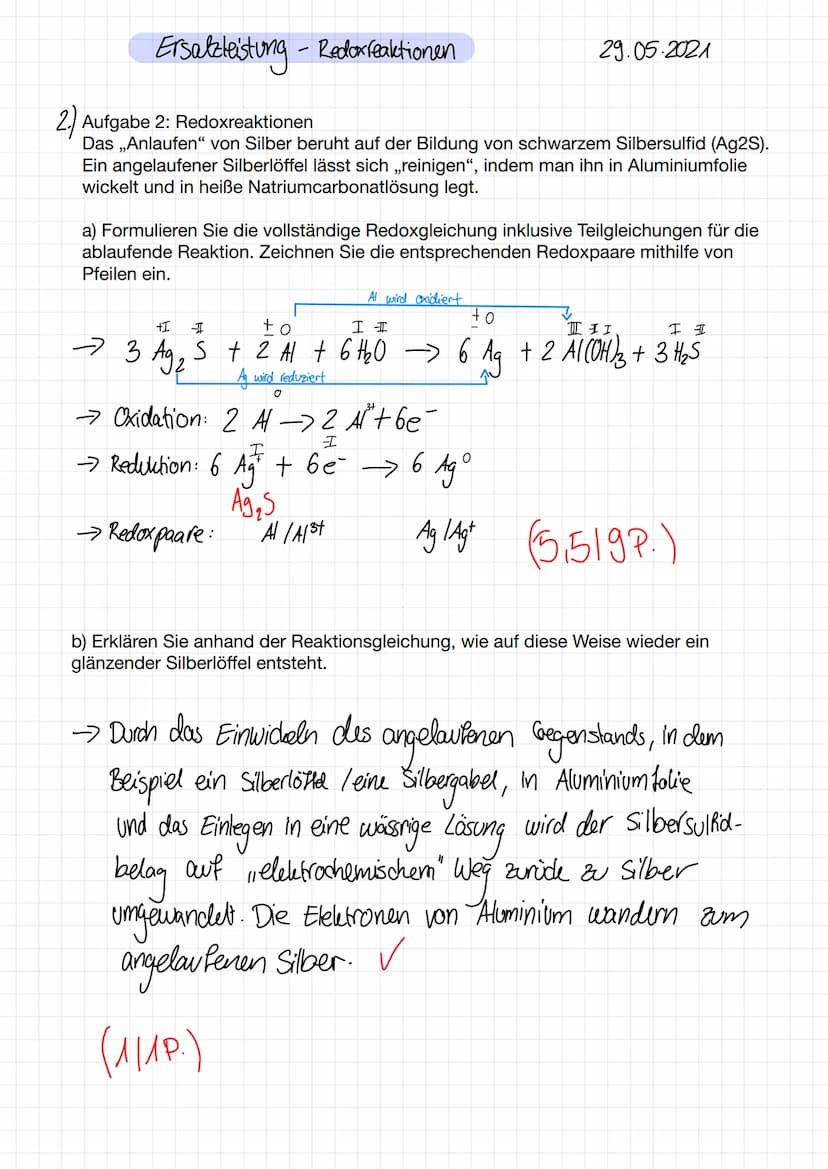 Ersatzleistung - Redoxreaktionen 29.05.2021
2.) Aufgabe 2: Redoxreaktionen
Das „Anlaufen“ von Silber beruht auf der Bildung von schwarzem Silbersulfid (Ag2S).
Ein angelaufener Silberlöffel lässt sich „reinigen“, indem man ihn in Aluminiumfolie
wickelt und in heiße Natriumcarbonatlösung legt.
a) Formulieren Sie die vollständige Redoxgleichung inklusive Teilgleichungen für die
ablaufende Reaktion. Zeichnen Sie die entsprechenden Redoxpaare mithilfe von
Pfeilen ein.
Al wird oxidiert
+I -II ±0 I -II ±0 III -II I I -II
→ 3 Ag₂S + 2 Al + 6 H₂O → 6 Ag + 2 Al(OH)₃ + 3 H₂S
Ag wird reduziert
0
→ Oxidation: 2 Al → 2 Al³⁺ + 6e⁻
I -I
→ Reduktion: 6 Ag⁺ + 6e⁻ → 6 Ag⁰
Ag₂S
→ Redoxpaare: Al / Al³⁺ Ag / Ag⁺ (5,5/9P.)
b) Erklären Sie anhand der Reaktionsgleichung, wie auf diese Weise wieder ein
glänzender Silberlöffel entsteht.
→ Durch das Einwickeln des angelaufenen Gegenstands, in dem
Beispiel ein Silberlöffel / eine Silbergabel, in Aluminiumfolie
und das Einlegen in eine wässrige Lösung wird der Silbersulfid-
belag auf „elektrochemischem“ Weg zurück zu Silber
umgewandelt. Die Elektronen von Aluminium wandern zum
angelaufenen Silber. ✓
(1/1P.)